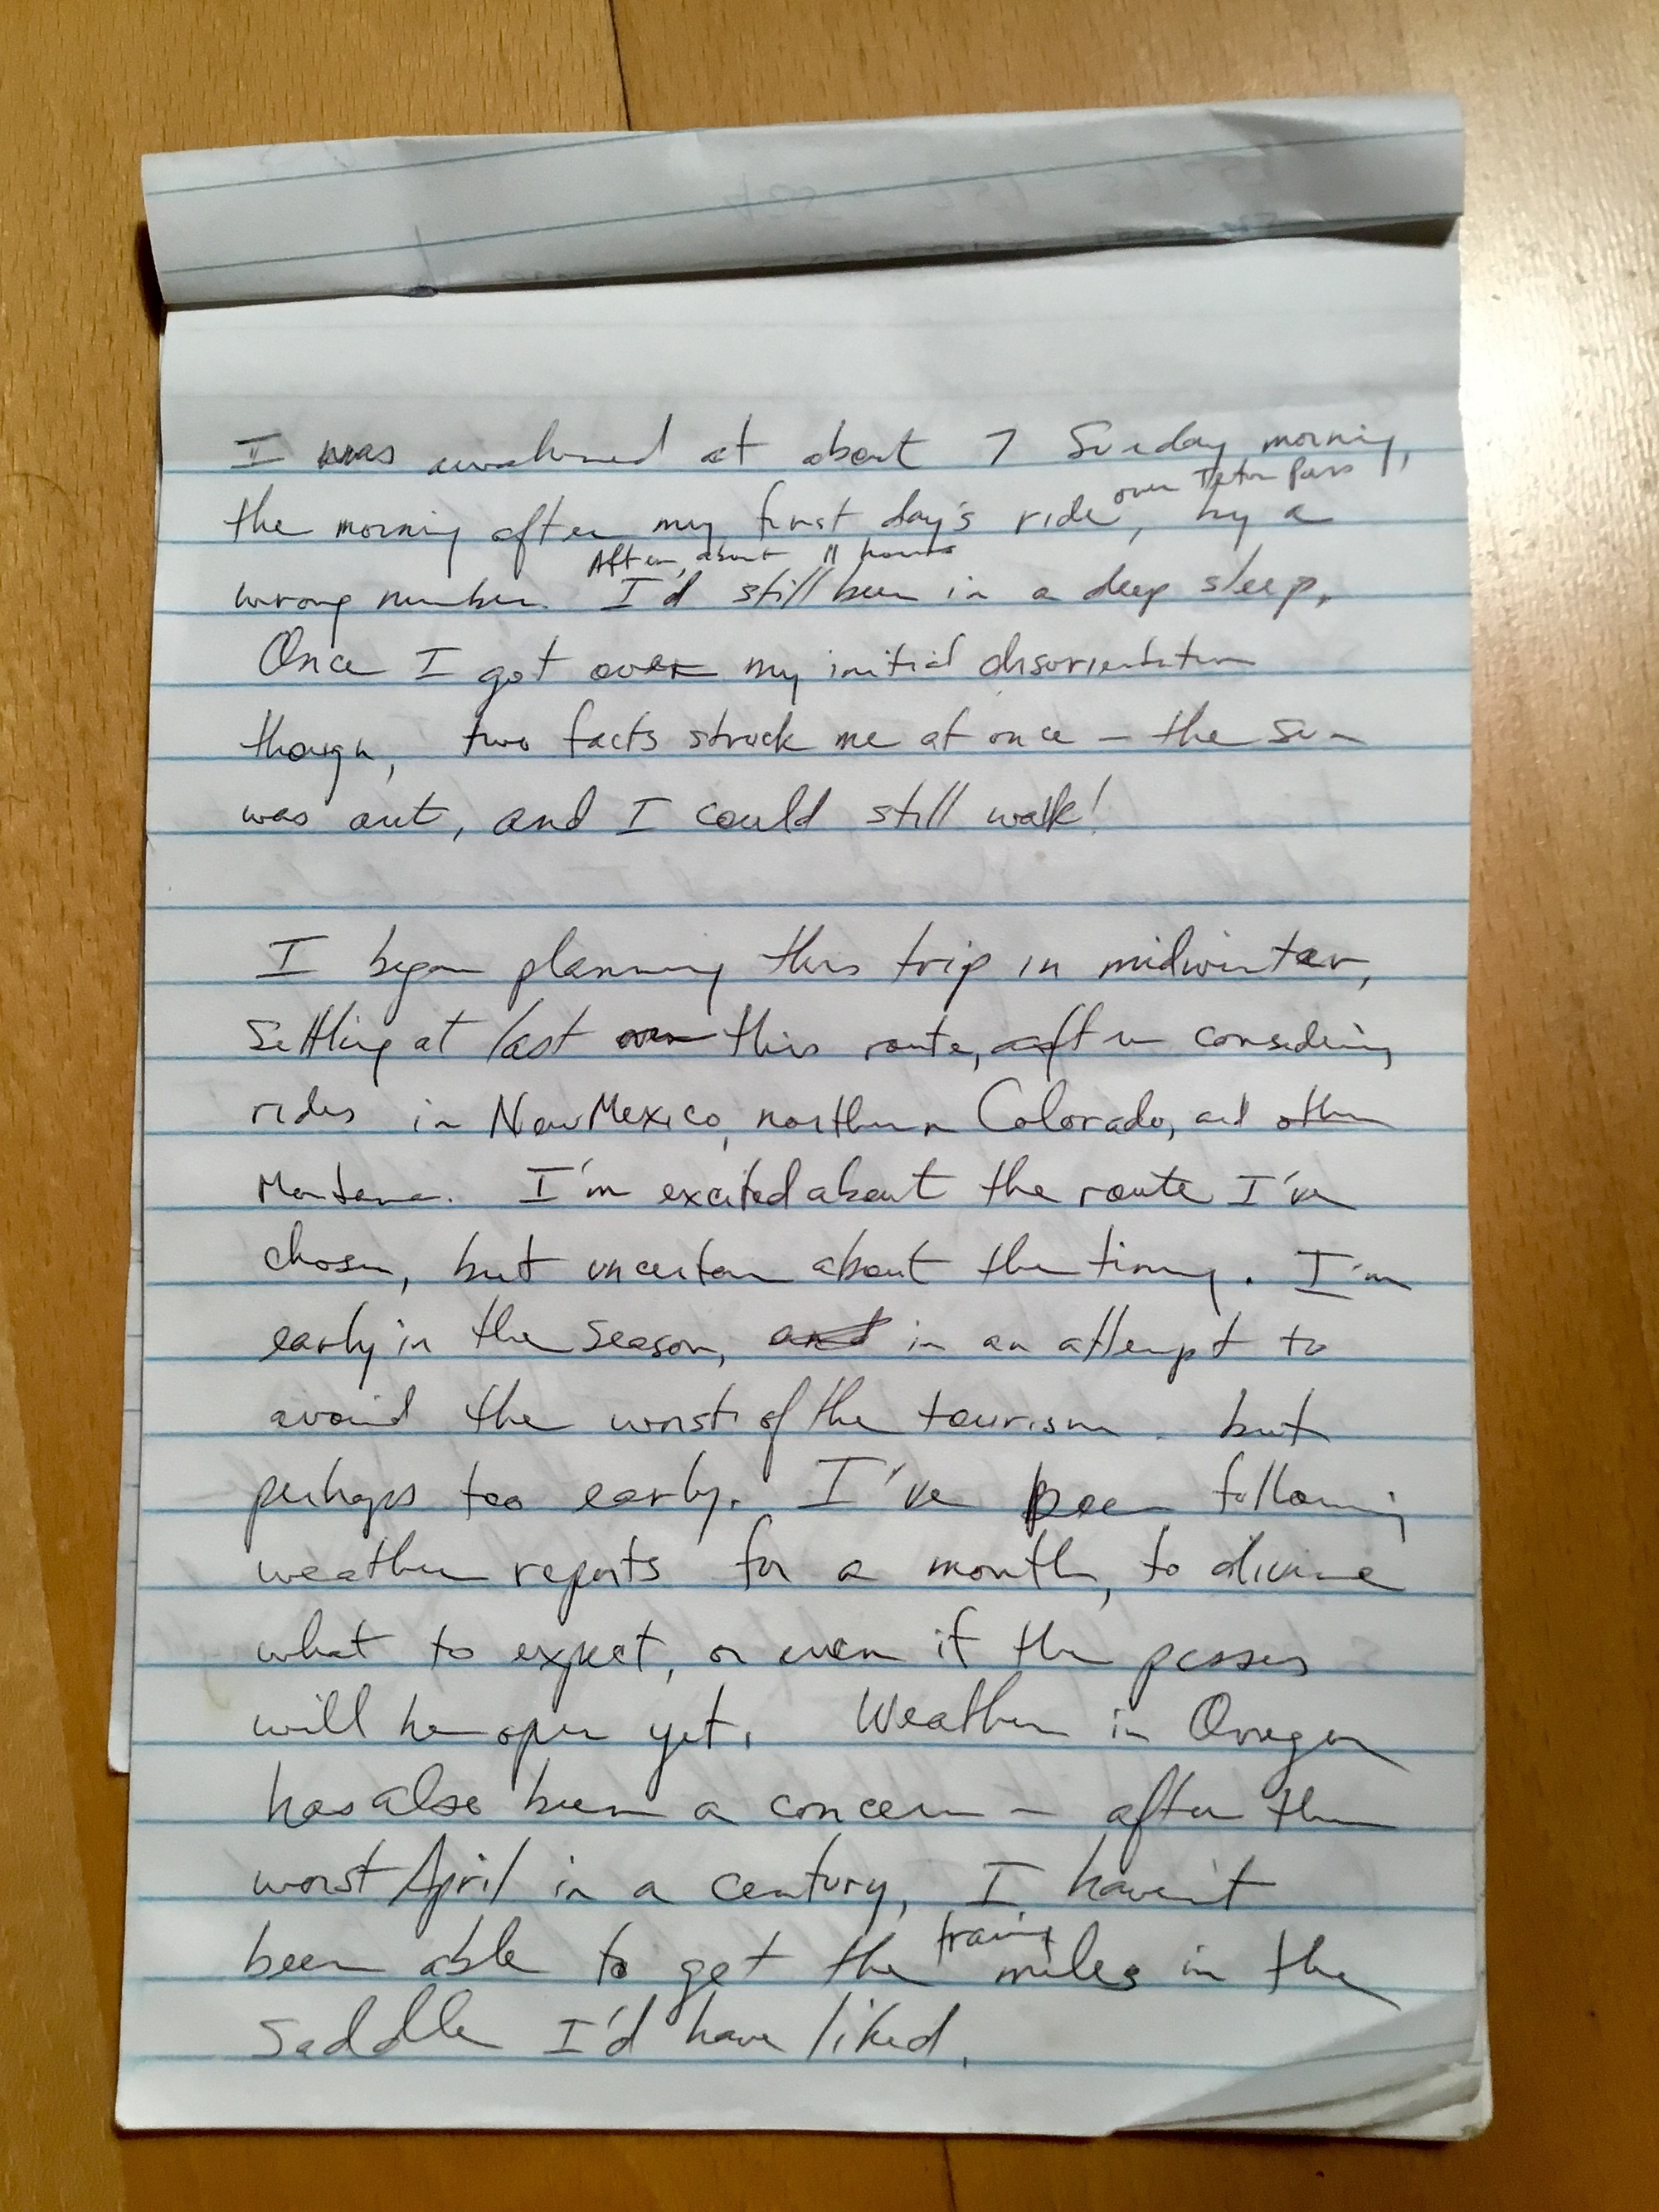 I was awakened at about 7 Sunday morning,
over Teton Pass
the morning after my first day's ride, by a
After about 11 hours
wrong number. I'd still been in a deep sleep.
Once I got over my initial disorientation
though, two facts struck me at once - the sun
was out, and I could still walk!
I began planning this trip in midwinter,
settling at last on this route, after considering
rides in New Mexico, northern Colorado, and other
Montana. I'm excited about the route I've
chosen, but uncertain about the timing. I'm
early in the season, and in an attempt to
avoid the worst of the tourism but
perhaps too early. I've been following
weather reports for a month, to divine
what to expect, or even if the passes
will be open yet. Weather in Oregon
has also been a concern - after the
worst April in a century, I haven't
training
been able to get the miles in the
saddle I'd have liked.